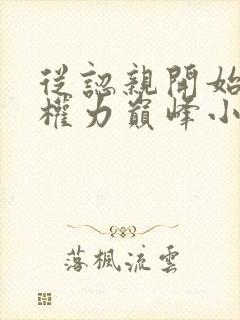 從認親開始
權力巔峰小
落楓流雲